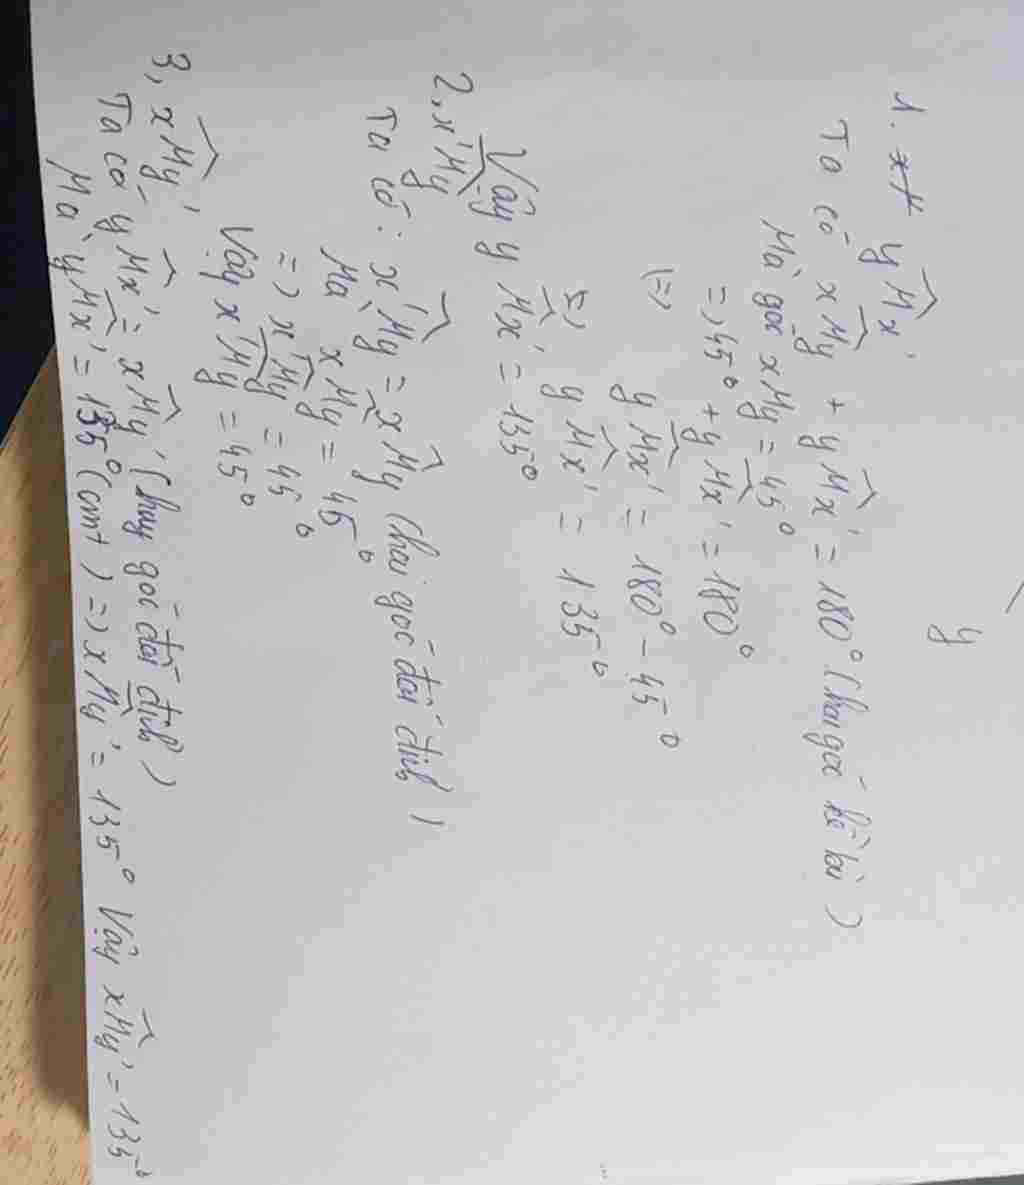 y
1. x y M x'
Ta có xMy + yMx' = 180° (hai góc kề bù)
Mà góc xMy = 45°
=> 45° + yMx' = 180°
(=) yMx' = 180° - 45°
=> yMx' = 135°
Vậy yMx' = 135°
2, x'My'
Ta có: x'My' = xMy (hai góc đối đỉnh)
Mà xMy = 45°
=> x'My' = 45°
Vậy x'My' = 45°
3, xMy'
Ta có yMx' = xMy' (hay góc đối đỉnh)
Mà yMx' = 135° (cmt) => xMy' = 135° Vậy xMy' = 135°